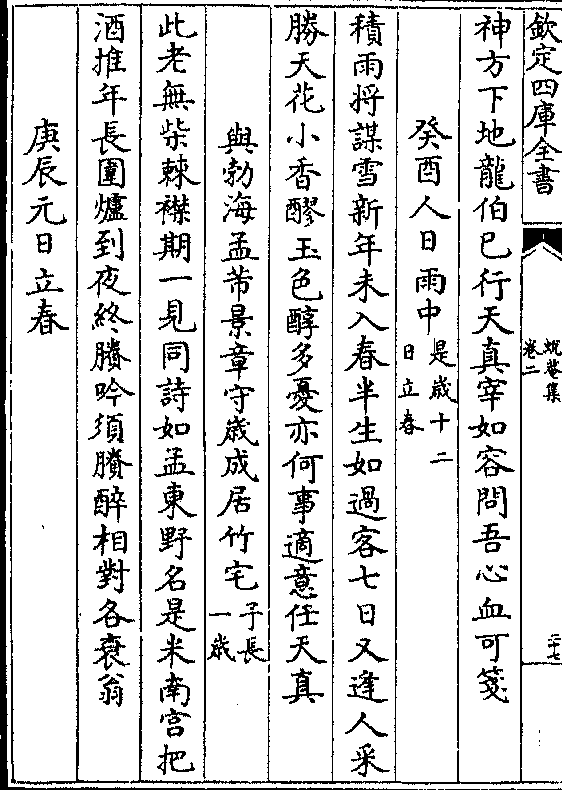 欽定四庫全書
蛻菴集
卷二
二十七
神方下地龍伯已行天真宰如容問吾心血可箋
癸酉人日雨中是歲十二
日立春
積雨将謀雪新年未入春半生如過客七日又逢人采
勝天花小香醪玉色醇多憂亦何事適意任天真
與勃海孟芾景章守歲成居竹宅子長
一歲
此老無柴棘襟期一見同詩如孟東野名是米南宫把
酒推年長圍爐到夜終賸吟須賸醉相對各衰翁
庚辰元日立春